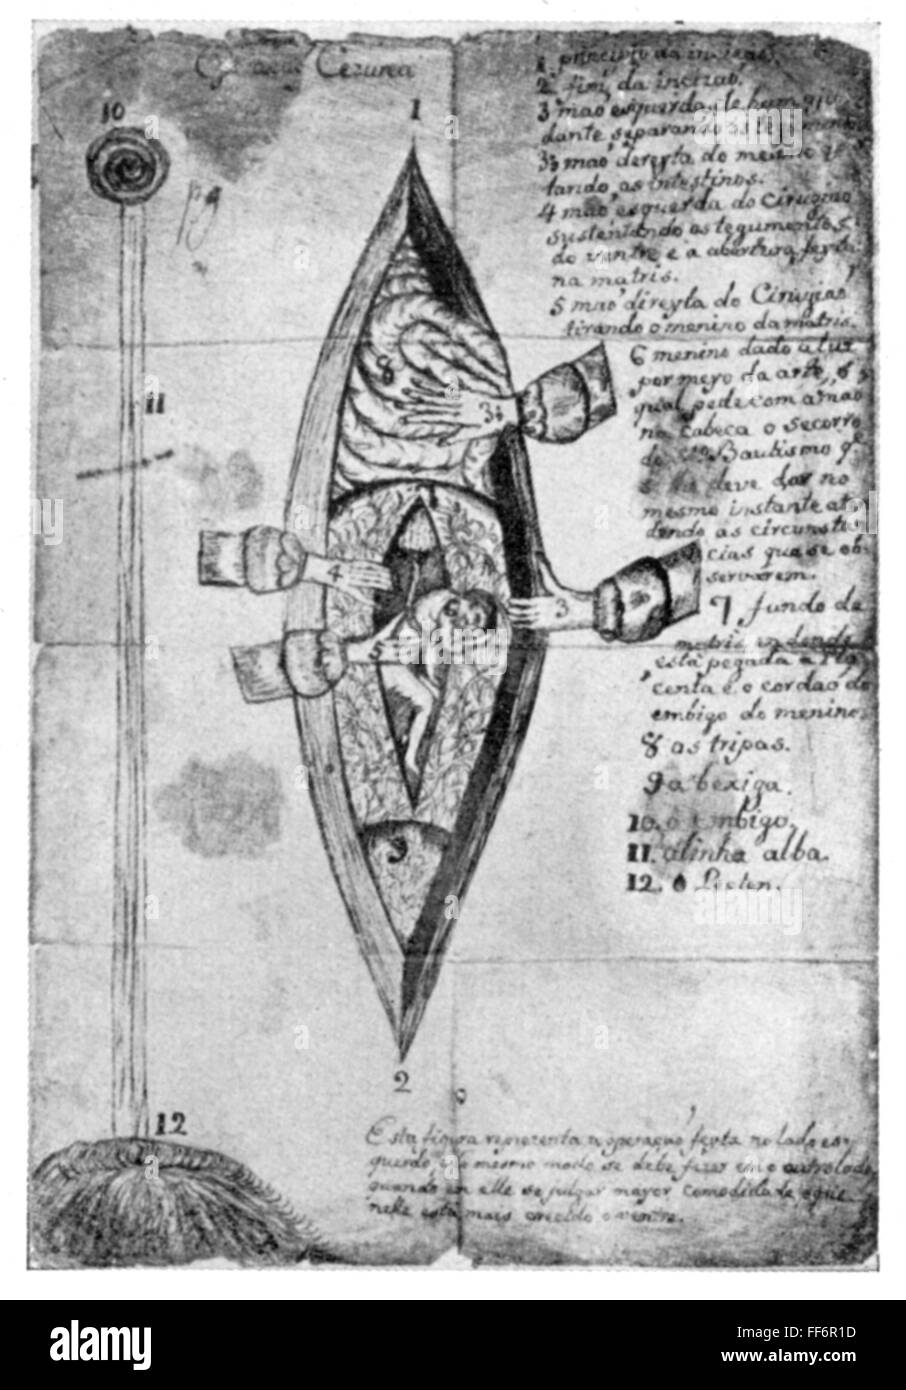 Cezurea
1 principio da incizaõ.
2 fim da incizaõ.
3 maõ esquerda de hum aju-
dante separando os tegumen
3½ maõ dereyta do mesmo
tando os intestinos.
4 maõ esquerda do Cirugiaõ
sustentando os tegumentos
do ventre e a abertura feyta
na matris.
5 maõ direyta do Cirugiaõ
tirando o menino da matris.
6 menino dado a luz
por meyo da arte, o
qual pede com a maõ
na cabeca o socorro
do Bautismo q.
se lhe deve dar no
mesmo instante at-
dendo as circunsta
cias que se ob-
servarem.
7 fundo da
matris en donde
está pegada a Pla
centa e o cordaõ do
embigo do menino.
8 as tripas.
9 a bexiga.
10. o embigo.
11. alinha alba.
12. o Pecten.
10
1
11
8
3½
7
4
3
5
9
2
12
Esta figura representa a operaçaõ feyta no lado es-
querdo, e do mesmo modo se debe fazer em o outro lado,
quando en elle se julgar mayor comodidade, o que
nelle está mais crecido o ventre.
alamy
Image ID: FF6R1D
www.alamy.com